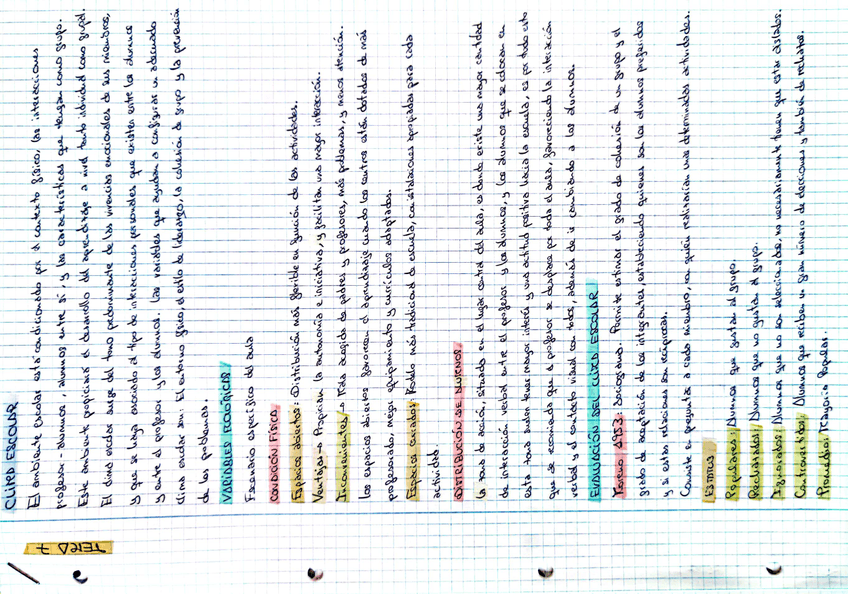 TEMA 7
CLIMA ESCOLAR
El ambiente escolar está condicionado por el contexto físico, las interacciones
profesor-alumnos, alumnos entre sí, y las características que tengan como grupo.
Este ambiente propiciará el desarrollo del aprendizaje a nivel tanto individual como grupal.
El clima escolar surge del tono predominante de las vivencias emocionales de sus miembros,
y que se haya asociado al tipo de interacciones personales que existen entre los alumnos
y entre el profesor y los alumnos. Las variables que ayudan a configurar un adecuado
clima escolar son: El entorno físico, el estilo de liderazgo, la cohesión de grupo y la prevención
de los problemas.
VARIABLES ECOLÓGICAS
Escenario específico del aula
CONDICIÓN FÍSICA
Espacios abiertos: Distribución más flexible en función de las actividades.
Ventajas → Propician la autonomía e iniciativa, y facilitan una mayor interacción.
Inconvenientes → Mala acogida de padres y profesores, más problemas, y menos atención.
Los espacios abiertos favorecen el aprendizaje cuando los centros están dotados de más
profesorado, mejor equipamiento y currículos adaptados.
Espacios cerrados: Modelo más tradicional de escuela, con instalaciones apropiadas para cada
actividad.
DISTRIBUCIÓN DE ALUMNOS
La zona de acción, situada en el lugar central del aula, es donde existe una mayor cantidad
de interacción verbal entre el profesor y los alumnos, y los alumnos que se colocan en
esta zona suelen tener mayor interés y una actitud positiva hacia la escuela, es por todo esto
que se recomienda que el profesor se desplace por toda el aula, favoreciendo la interacción
verbal y el contacto visual con todos, además de ir cambiando a los alumnos.
EVALUACIÓN DEL CLIMA ESCOLAR
Moreno 1953: Sociograma. Permite estimar el grado de cohesión de un grupo y el
grado de aceptación de los integrantes, estableciendo quienes son los alumnos preferidos
y si estas relaciones son recíprocas.
Consiste en preguntar a cada miembro, con quién realizarían unas determinadas actividades.
ESTATUS:
Populares: Alumnos que gustan al grupo.
Rechazados: Alumnos que no gustan al grupo.
Ignorados: Alumnos que no son seleccionados, no necesariamente tienen que estar aislados.
Controvertidos: Alumnos que reciben un gran número de elecciones y también de rechazos.
Promedio: Mayoría Popular.